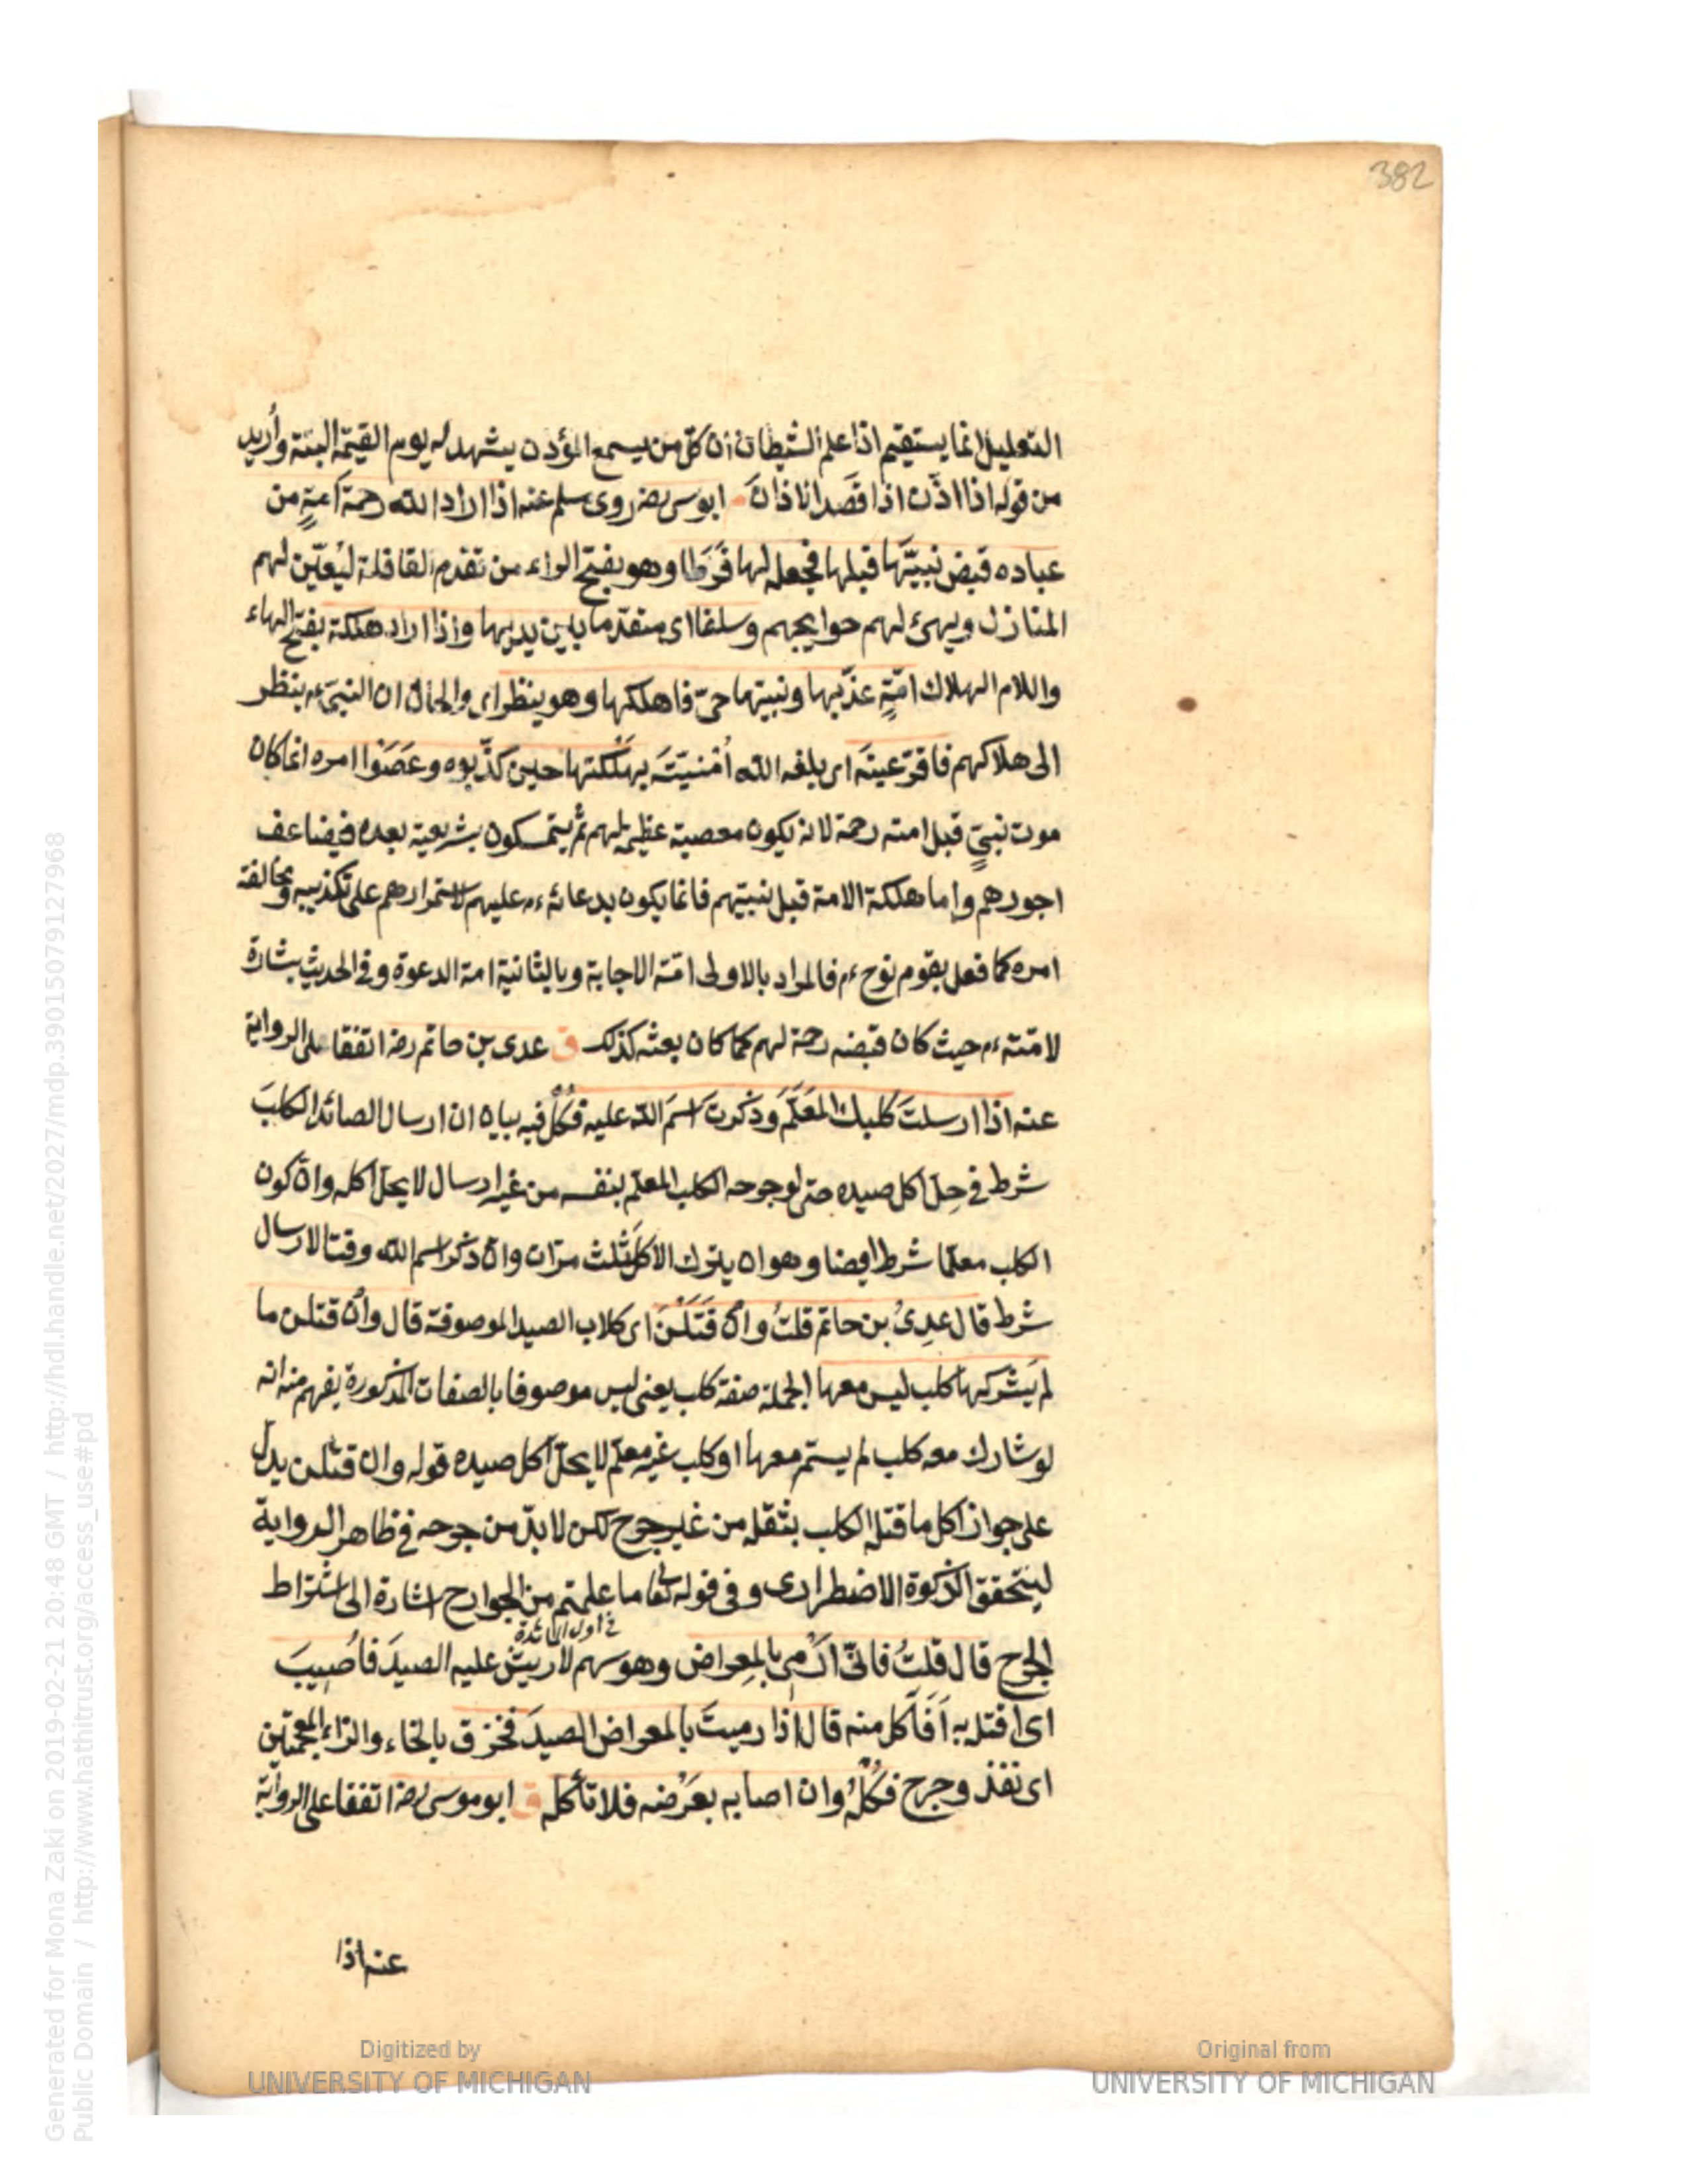 382
التعليل انما يستقيم اذا علم الشيطان ان كل من يسمع المؤذن يشهد له يوم القيمة البتة واريد
من قوله اذا اذن اذا قصد اذانا م ابوموسى رضه روى مسلم عنه اذا اراد الله رحمة امة من
عباده قبض نبيّها قبلها فجعله لها فَرَطا وهو بفتح الراء من تقدم القافلة ليعيّن لهم
المنازل ويهئ لهم حوايجهم وسلفا اى متقدما بين يديها واذا اراد هلكة بفتح الهاء
واللام الهلاك امّةٍ عذّبها ونبيّها حىّ فاهلكها وهو ينظر اى والحال ان النبىّ ءم ينظر
الى هلاكهم فاقرّ عينَه اى بلغه الله اُمْنيّتَه بهلكتها حين كذّبوه وعَصَوْا امره انما كان
موت نبىٍ قبل امته رحمة لانه يكون مصيبة عظيمة لهم ثم يتمسكون بشريعته بعده فيضاعف
اجورهم واما هلكة الامة قبل نبيّهم فانما يكون بدعائه ءم عليهم لاستمرارهم على تكذيبه ومخالفة
امره كما فعل بقوم نوح ءم فالمراد بالاولى امّة الاجابة وبالثانية امة الدعوة وفى الحديث بشارة
لامّته ءم حيث كان قبضه رحمة لهم كما كان بعثه كذلك ق عدى بن حاتم رضه اتفقا على الرواية
عنه اذا ارسلتَ كلبك المعَلَّم وذكرت اسمَ الله عليه فكُلْ فيه بيان ان ارسال الصائد الكلبَ
شرط فى حِلّ اكل صيده حتى لو جرحه الكلب المعلّم بنفسه من غير ارسال لا يحلّ اكله وان كون
الكلب معلّما شرط ايضا وهو ان يترك الاكل ثلث مرّات وان ذكر اسم الله وقت الارسال
شرط قال عدِىُ بن حاتم قلتُ وانْ قَتَلْنَ اى كلاب الصيد الموصوفة قال وانْ قتلن ما
لم يَشْرَكها كلب ليس معها الجملة صفة كلب يعنى ليس موصوفا بالصفات المذكورة يفهم منه انه
لو شارك معه كلب لم يسمّ معها او كلب غير معلّم لا يحلّ اكل صيده قوله وان قتلن يدل
على جواز اكل ما قتله الكلب بثقله من غير جرح لكن لا بدّ من جرحه فى ظاهر الرواية
ليتحقق الذكوة الاضطرارى وفى قوله تعالى ما علمتم من الجوارح اشارة الى اشتراط
فى اول المائدة
الجرح قال قلتُ فانّى اَرْمى بالمِعراض وهو سهم لا ريش عليه الصيدَ فاُصِيبَ
اى اقتل به اَفَآكل منه قال اذا رميتَ بالمعراض الصيدَ فخزق بالخاء والزاء المعجمتين
اى نفذ وجرح فكُلْه وان اصابه بعَرْضه فلا تأكله ق ابو موسى رضه اتفقا على الرواية
عنه اذا
Generated for Mona Zaki on 2019-02-21 20:48 GMT / http://hdl.handle.net/2027/mdp.39015079127968
Public Domain / http://www.hathitrust.org/access_use#pd
Digitized by
UNIVERSITY OF MICHIGAN
Original from
UNIVERSITY OF MICHIGAN